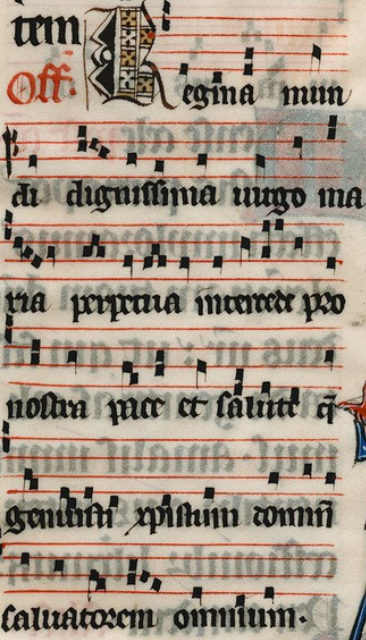 tem
Off. Regina mun
di dignissima uirgo ma
ria perpetua intercede pro
nostra pace et salute q̄
genuisti xpistum domin̄
saluatorem omnium.